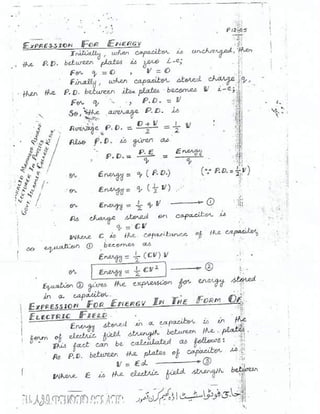 P12-25
EXPRESSION FOR ENERGY
Initially, when capacitor is uncharged, then
the P.D. between plates is zero i-e;
For q = 0 , V = 0
Finally, when capacitor stored charge q,
then the P.D. between its plates becomes V i-e;
For q , P.D. = V
So, the average P.D. is
Average P.D. = 0+V/2 = 1/2 V
Also P.D. is given as
P.D. = P.E/q = Energy/q
or Energy = q (P.D.) (∵ P.D. = 1/2 V)
or Energy = q (1/2 V)
or Energy = 1/2 q V → ①
As charge stored on capacitor is
q = CV
Where C is the capacitance of the capacitor
so equation ① becomes as
Energy = 1/2 (CV) V
or Energy = 1/2 CV² → ②
Equation ② gives the expression for energy stored
in a capacitor.
EXPRESSION FOR ENERGY IN THE FORM OF
ELECTRIC FIELD
Energy stored in a capacitor is in the
form of electric field strength between the plates
This fact can be calculated as follows:
As P.D. between the plates of capacitor is
V = Ed → ③
Where E is the electric field strength between
LECTURER IN PHYSICS